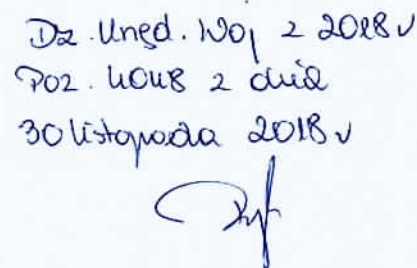 Dz. Urzęd. Woj z 2018 r
Poz. 4048 z dnia
30 listopada 2018 r